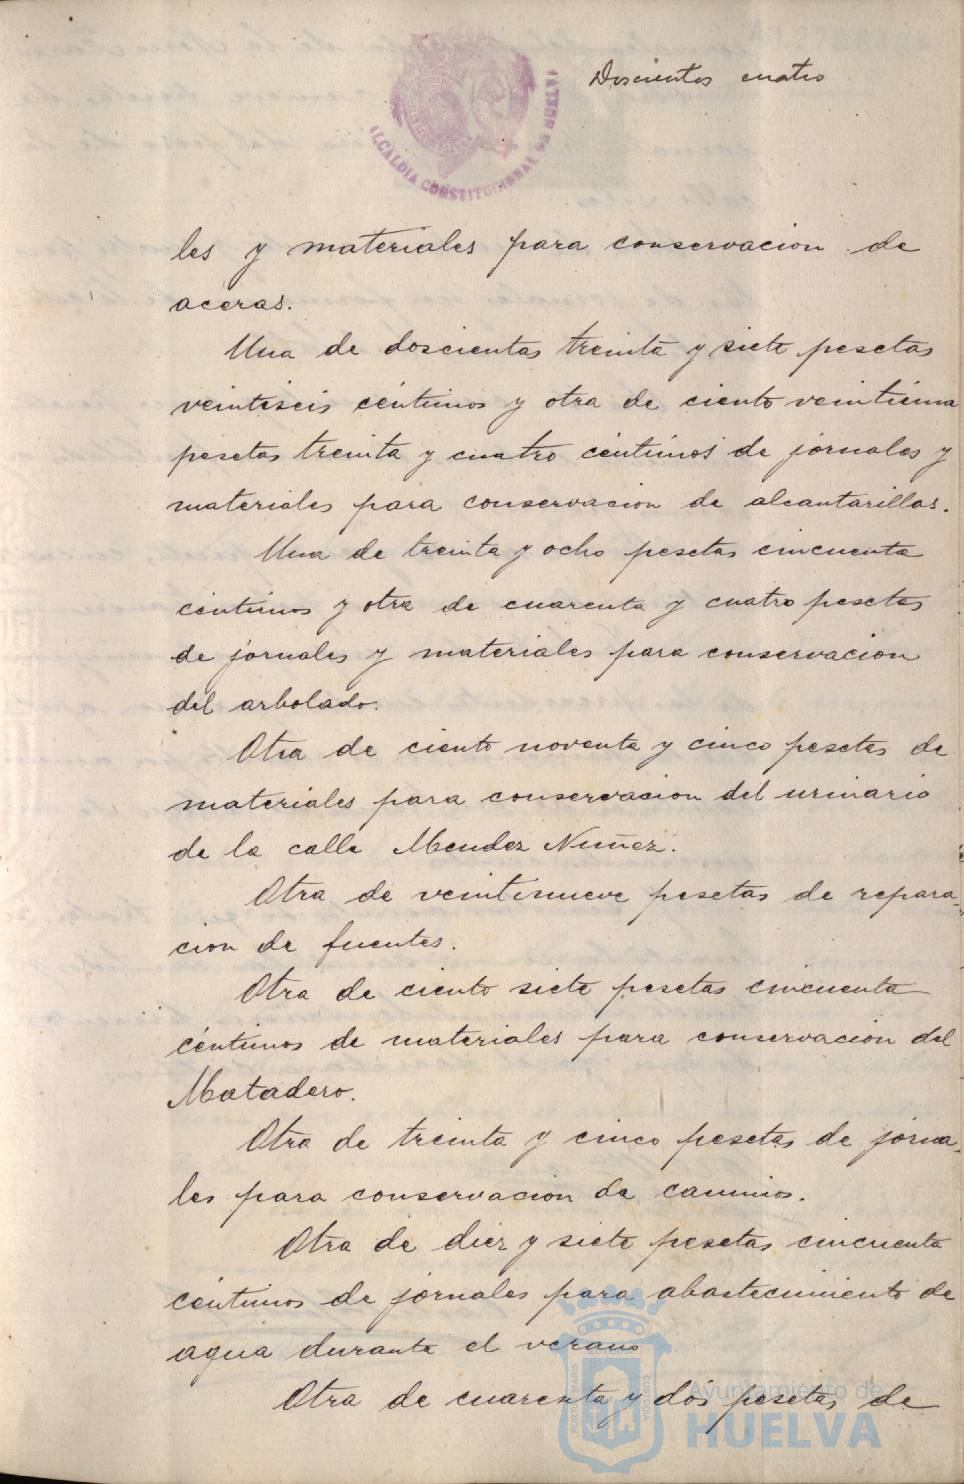 Doscientos cuatro
ALCALDIA CONSTITUCIONAL DE HUELVA
les y materiales para conservacion de
aceras.
Una de doscientas treinta y siete pesetas
veintiseis céntimos y otra de ciento veintiuna
pesetas treinta y cuatro céntimos de jornales y
materiales para conservacion de alcantarillas.
Una de treinta y ocho pesetas cincuenta
céntimos y otra de cuarenta y cuatro pesetas
de jornales y materiales para conservacion
del arbolado.
Otra de ciento noventa y cinco pesetas de
materiales para conservacion del urinario
de la calle Mendez Nuñez.
Otra de veintinueve pesetas de repara-
cion de fuentes.
Otra de ciento siete pesetas cincuenta
céntimos de materiales para conservacion del
Matadero.
Otra de treinta y cinco pesetas de jorna-
les para conservacion de caminos.
Otra de diez y siete pesetas cincuenta
céntimos de jornales para abastecimiento de
agua durante el verano
Otra de cuarenta y dos pesetas de
Ayuntamiento de
HUELVA